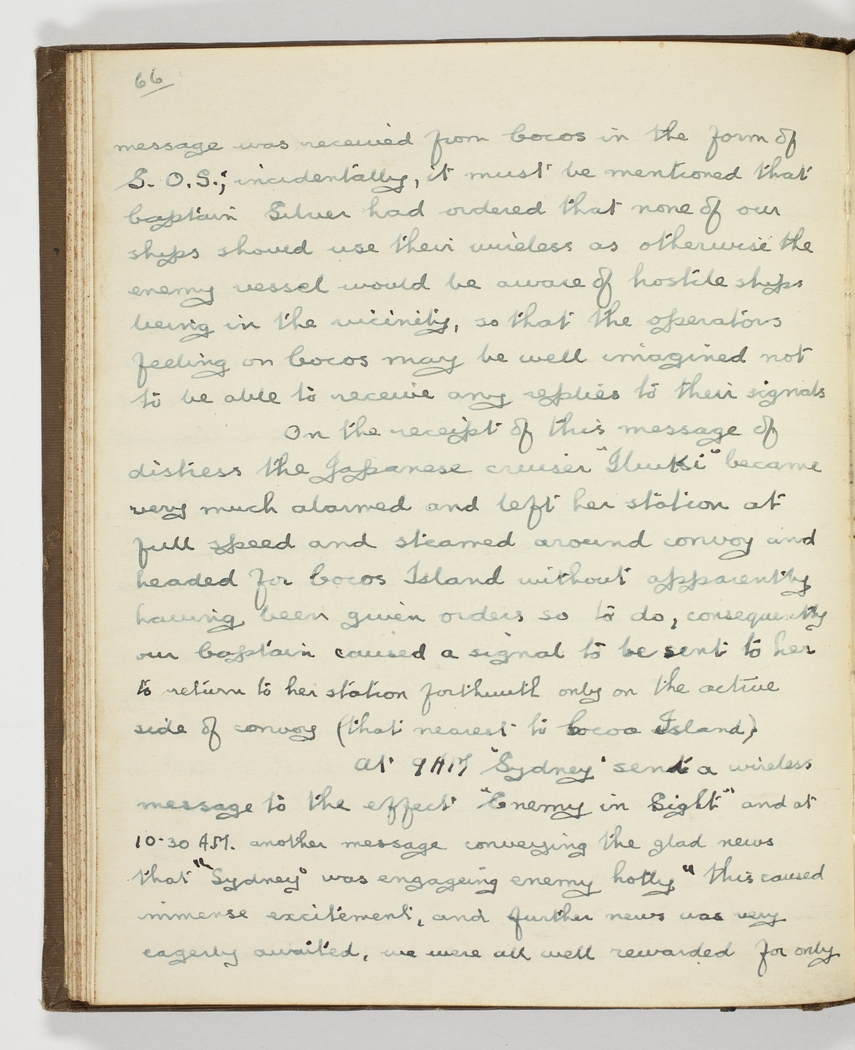 66
message was received from Cocos in the form of
S.O.S.; incidentally, it must be mentioned that
Captain Silver had ordered that none of our
ships should use their wireless as otherwise the
enemy vessel would be aware of hostile ships
being in the vicinity, so that the operators
feeling on Cocos may be well imagined not
to be able to receive any replies to their signals
On the receipt of this message of
distress the Japanese cruiser "Ibuki" became
very much alarmed and left her station at
full speed and steamed around convoy and
headed for Cocos Island without apparently
having been given orders so to do, consequently
our Captain caused a signal to be sent to her
to return to her station forthwith only on the active
side of convoy (that nearest to Cocoa Island)
At 9 AM "Sydney" sent a wireless
message to the effect "Enemy in Sight" and at
10-30 AM. another message conveying the glad news
that "Sydney" was engageing enemy hotly" this caused
immense excitement, and further news was very
eagerly awaited, we were all well rewarded for only